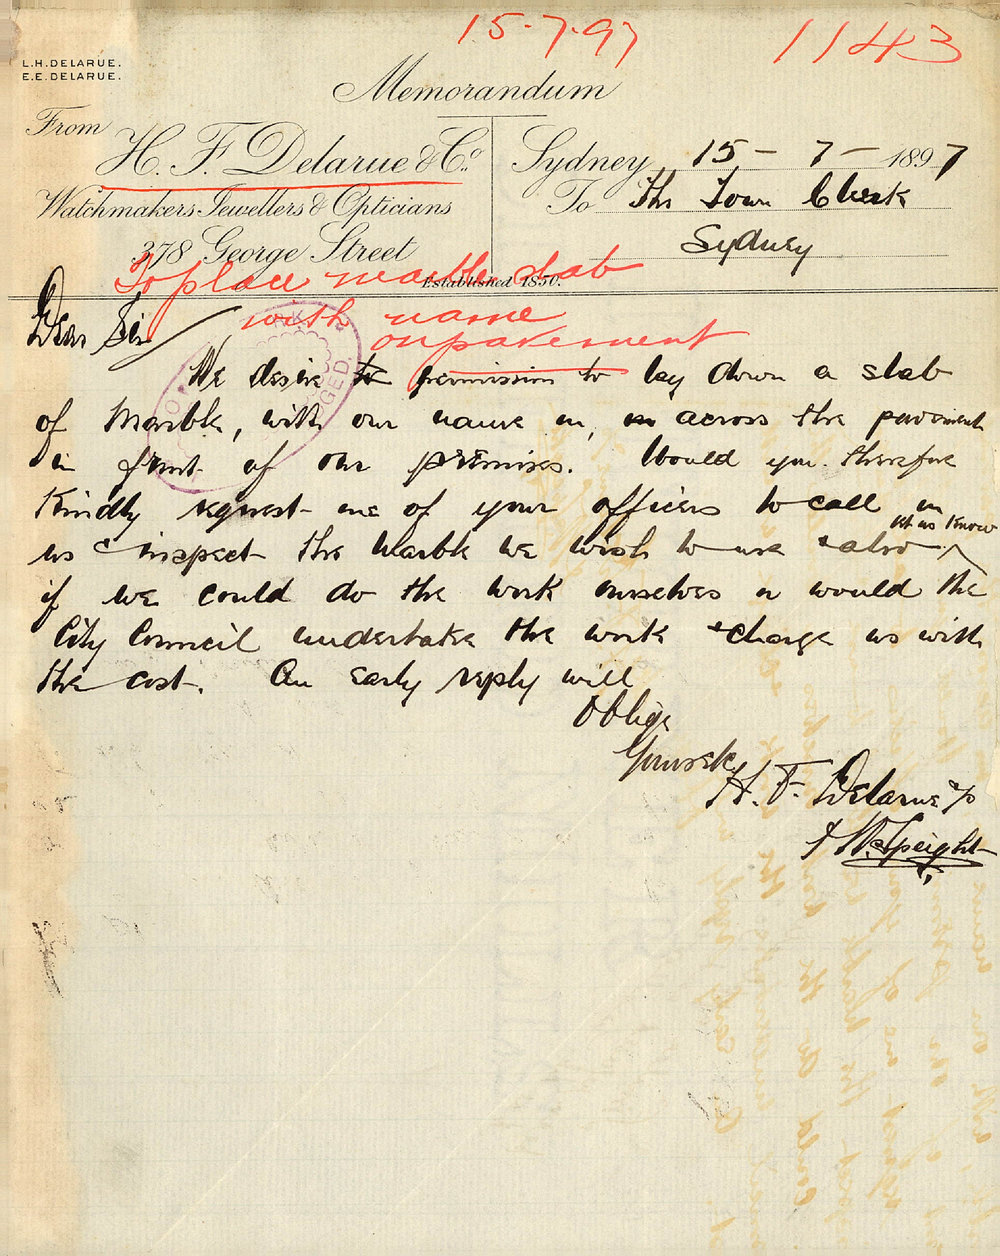 15.7.97 1143
L.H.DELARUE.
E.E.DELARUE.
Memorandum
From
H. F. Delarue & Co.
Watchmakers Jewellers & Opticians
378 George Street
Established 1850.
Sydney 15 - 7 - 1897
To The Town Clerk
Sydney
To place marble slab
with name
on pavement
Dear Sir
We desire to permission to lay down a slab
of Marble, with our name in, in across the pavement
in front of our premises. Would you therefore
Kindly request one of your officers to call on
us & inspect the Marble we wish to use & also let us know
if we could do the work ourselves or would the
City Council undertake the work & charge us with
the cost. An Early reply will
Oblige
Yours &c.
H. F. Delarue & Co